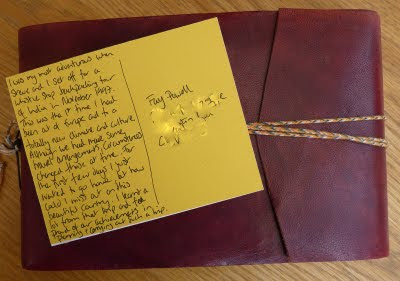 I was my most adventurous when
Steve and I set off for a
whistle stop backpacking tour
of India in November 1997.
This was the 1st time I had
been out of Europe and to a
totally new climate and culture
Although we had made some
travel arrangements, circumstances
changed those at time. For
the first few days I just
wanted to go home but how
could I miss out on this
beautiful country. I learnt a
lot from that trip and felt
proud of our achievement in
planning & carrying out such a trip
Fay